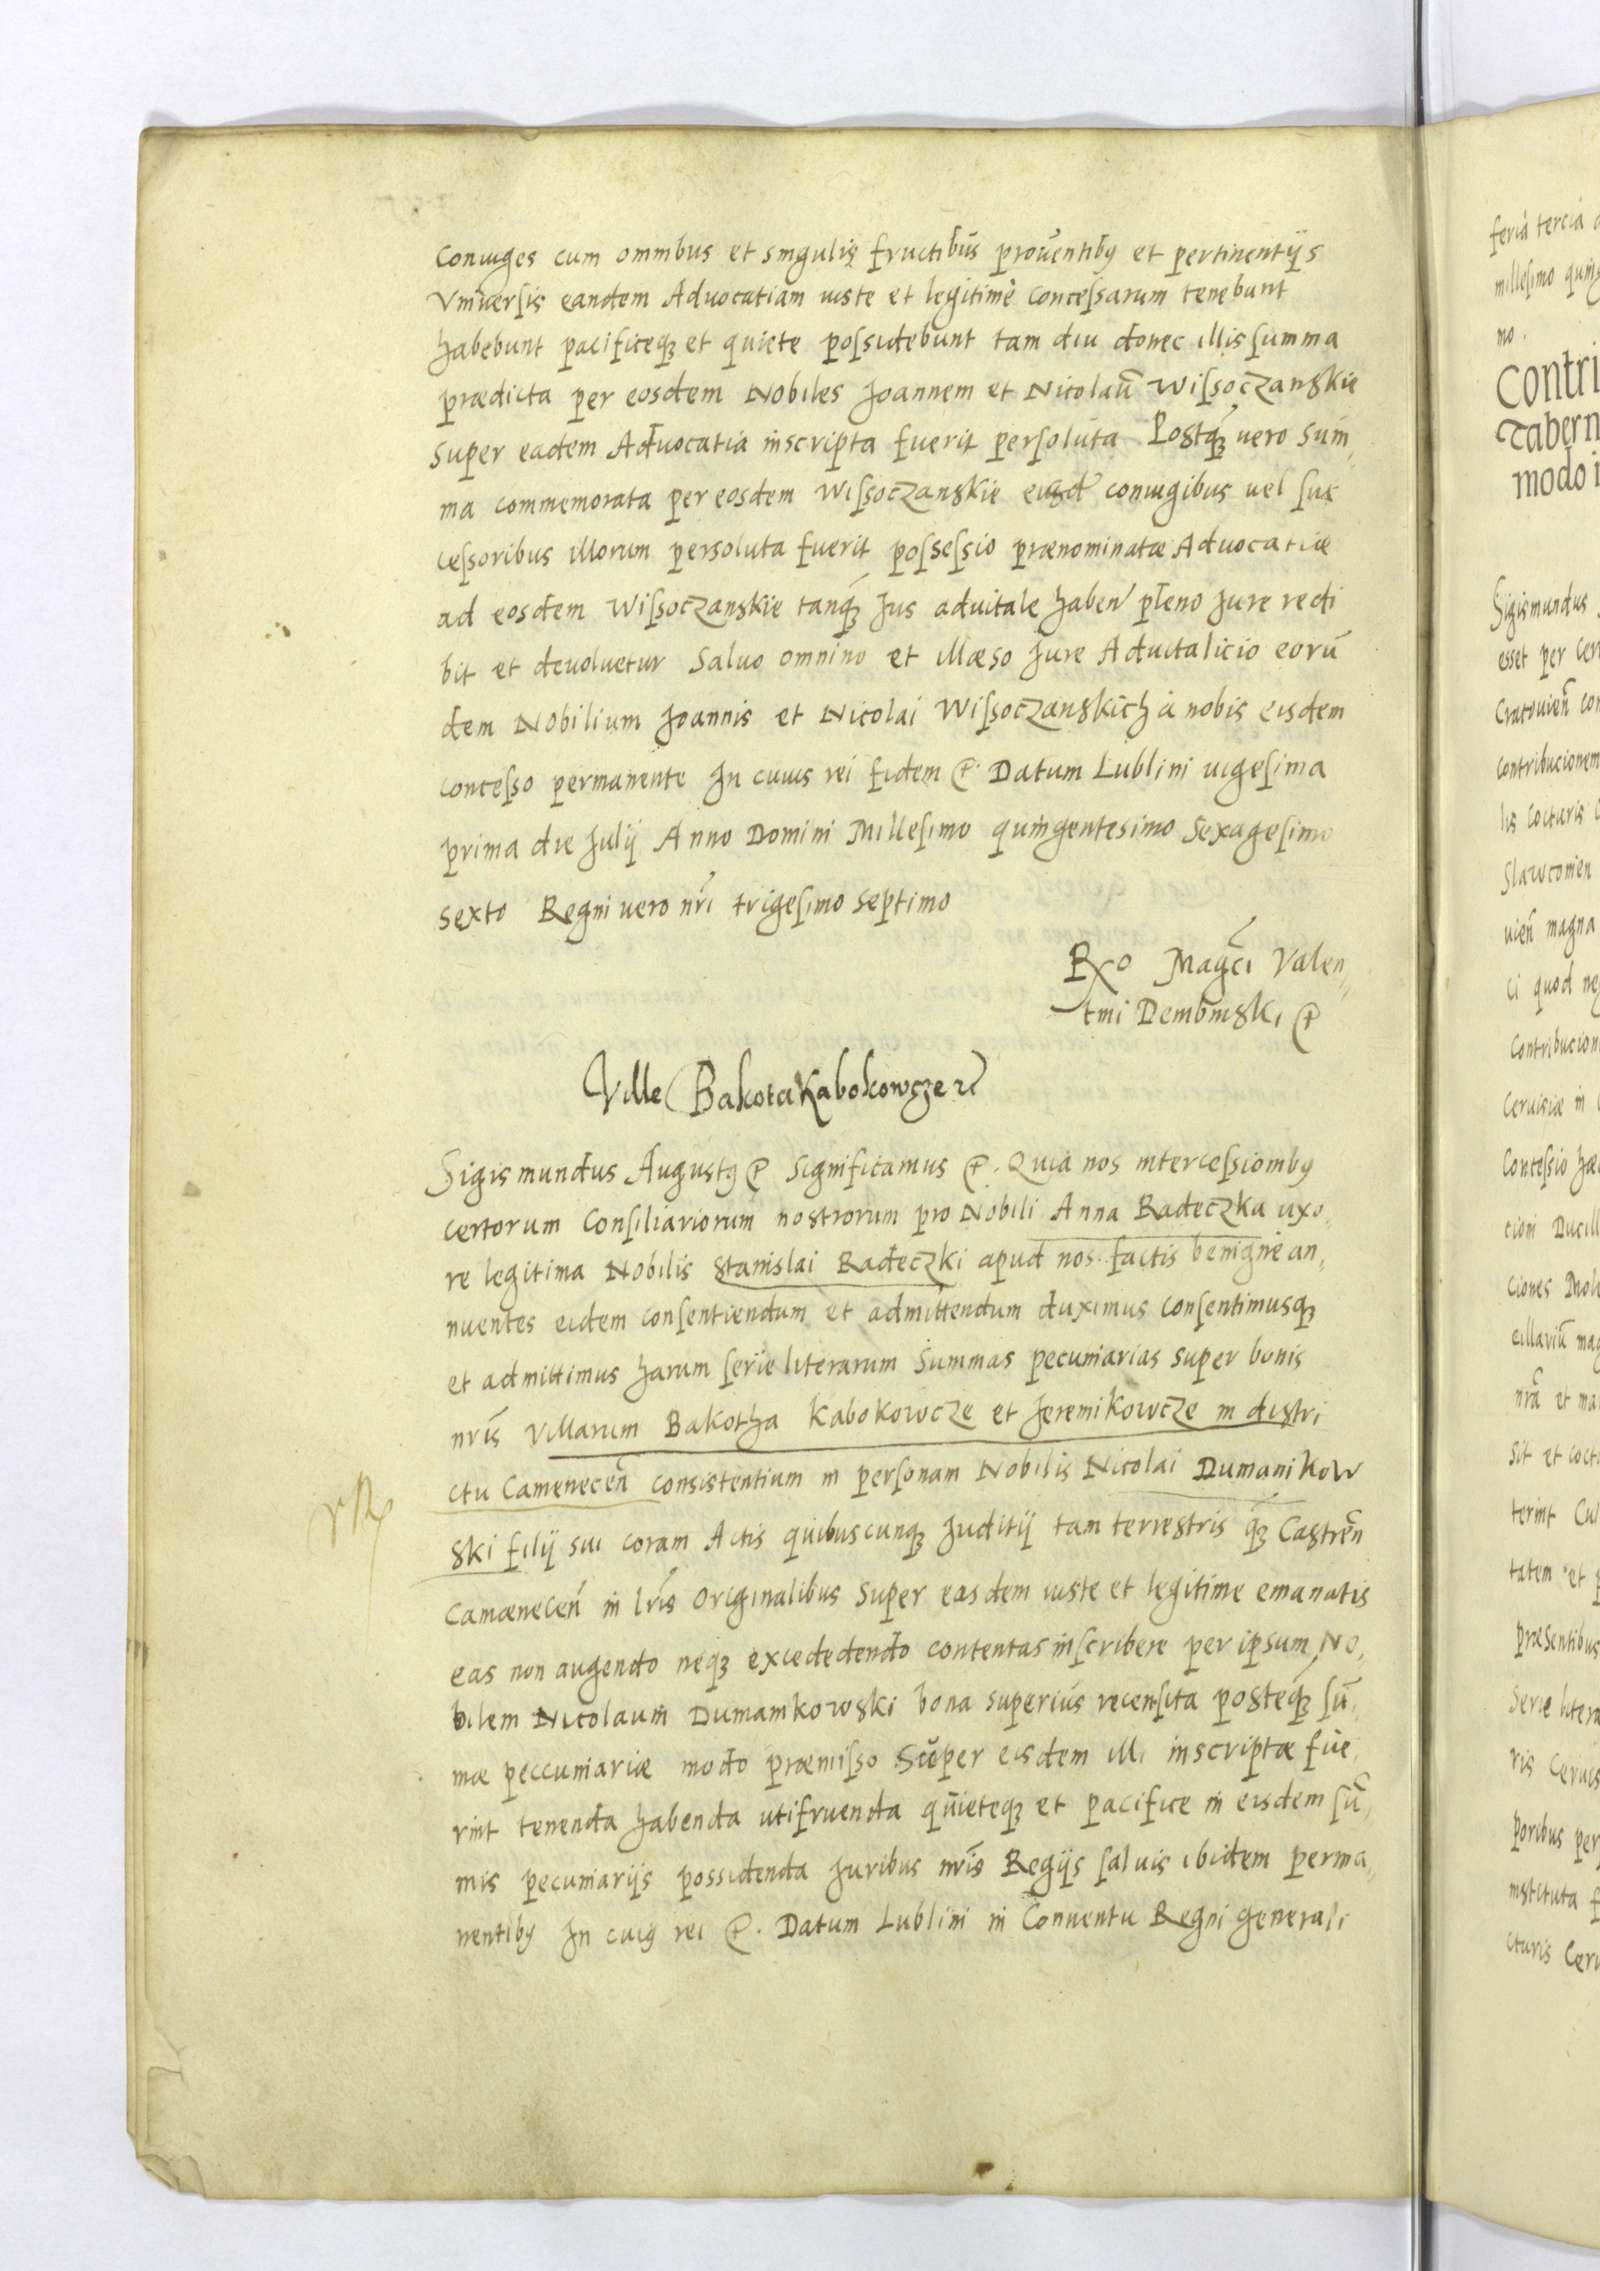 coniuges cum omnibus et singulis fructibus prouentibꝰ et pertinentijs
Vniuersis eandem Aduocatiam iuste et legitimè concessarum tenebunt
habebunt pacificeqꝫ et quiete possidebunt tam diu donec illis summa
prædicta per eosdem Nobiles Joannem et Nicolaū Wissoczanskie
super eadem Aduocatia inscripta fuerit persoluta Postqꝫ vero Sum,
ma commemorata per eosdem Wissoczanskie eisd coniugibus uel suc
cessoribus illorum persoluta fuerit possessio prænominatæ Aduocatiæ
ad eosdem Wissoczanskie tanqꝫ Jus aduitale haben pleno Jure redi
bit et deuoluetur Saluo omnino et illæso Jure Aduitalicio eorū
dem Nobilium Joannis et Nicolai Wissoczanskich à nobis eisdem
concesso permanente In cuius rei fidem etc. Datum Lublini uigesima
prima die Julij Anno Domini Millesimo quingentesimo Sexagesimo
sexto Regni vero nri trigesimo septimo
Rxo Magci Valen,
tini Dembinski etc
Ville Bakota Kabokowcze etc
Sigismundus Augustꝰ etc Significamus etc. Quia nos intercessionibꝰ
certorum Consiliariorum nostrorum pro Nobili Anna Radeczka uxo,
re legitima Nobilis Stanislai Radeczki apud nos factis benignè an,
nuentes eidem consentiendum et admittendum duximus consentimusqꝫ
et admittimus harum serie literarum Summas pecuniarias super bonis
nris Villarum Bakotha Kabokowcze et Jeremikowcze in distri
ctu Camenecen̄ consistentium in personam Nobilis Nicolai Dumanikow
ski filij sui coram Actis quibuscunqꝫ Juditij tam terrestris qꝫ Castren̄
Camænecen̄ in lris Originalibus Super easdem iuste et legitime emanatis
eas non augendo neqꝫ excededendo contentas inscribere per ipsum No,
bilem Nicolaum Dumamkowski bona superius recensita posteqꝫ sū,
mæ peccuniariæ modo præmisso Super eisdem illi inscriptæ fue,
rint tenenda habenda utifruenda quieteqꝫ et pacifice in eisdem sū,
mis pecuniarijs possidenda Juribus nris Regijs saluis ibidem perma,
nentibꝰ In cuiꝰ rei etc. Datum Lublini in Conuentu Regni generali
feria tercia
millesimo
mo.
Contri
Tabern
modo i
Sigismundus
esset per
Cracouien̄
contribucionem
lis
Slawcomien
uien̄ magna
ci quod
Contribucion
Ceruisiæ in
Concessio
cioni
ciones
nra et
sit et
terint
tatem et
præsentibus
Serie litera
ris
poribus per
instituta
cturis